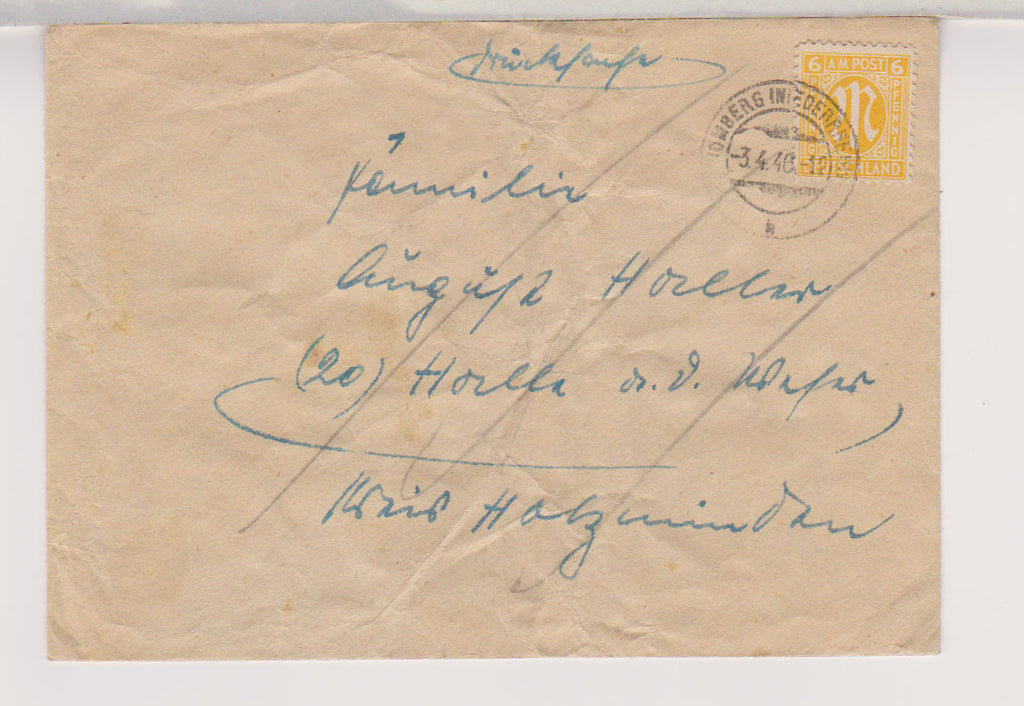 Drucksache
6 AM POST 6
PFENNIG
M
DEUTSCHLAND
HOMBERG (NIEDERRHEIN)
-3.4.46.-12
Familie
August Haller
(20) Halle a.d. Weser
Kreis Holzminden